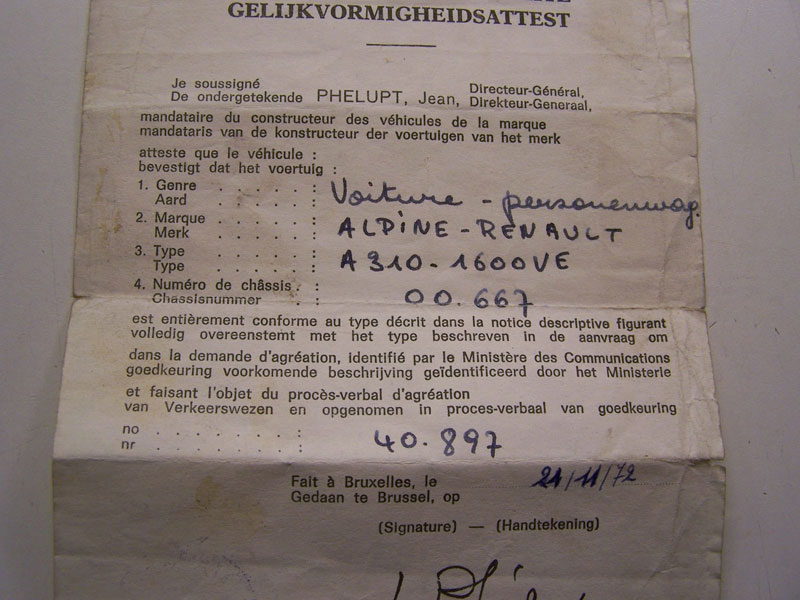 GELIJKVORMIGHEIDSATTEST
Je soussigné
De ondergetekende PHELUPT, Jean, Directeur-Général,
Direkteur-Generaal,
mandataire du constructeur des véhicules de la marque
mandataris van de konstructeur der voertuigen van het merk
atteste que le véhicule :
bevestigt dat het voertuig :
1. Genre . . . . . :
Aard . . . . . : Voiture - personenwag.
2. Marque . . . . . :
Merk . . . . . : ALPINE-RENAULT
3. Type . . . . . :
Type . . . . . : A310-1600VE
4. Numéro de châssis. :
Chassisnummer . . : 00.667
est entièrement conforme au type décrit dans la notice descriptive figurant
volledig overeenstemt met het type beschreven in de aanvraag om
dans la demande d'agréation, identifié par le Ministère des Communications
goedkeuring voorkomende beschrijving geïdentificeerd door het Ministerie
et faisant l'objet du procès-verbal d'agréation
van Verkeerswezen en opgenomen in proces-verbaal van goedkeuring
no . . . . . . . :
nr . . . . . . . : 40.897
Fait à Bruxelles, le
Gedaan te Brussel, op 21/11/72
(Signature) — (Handtekening)